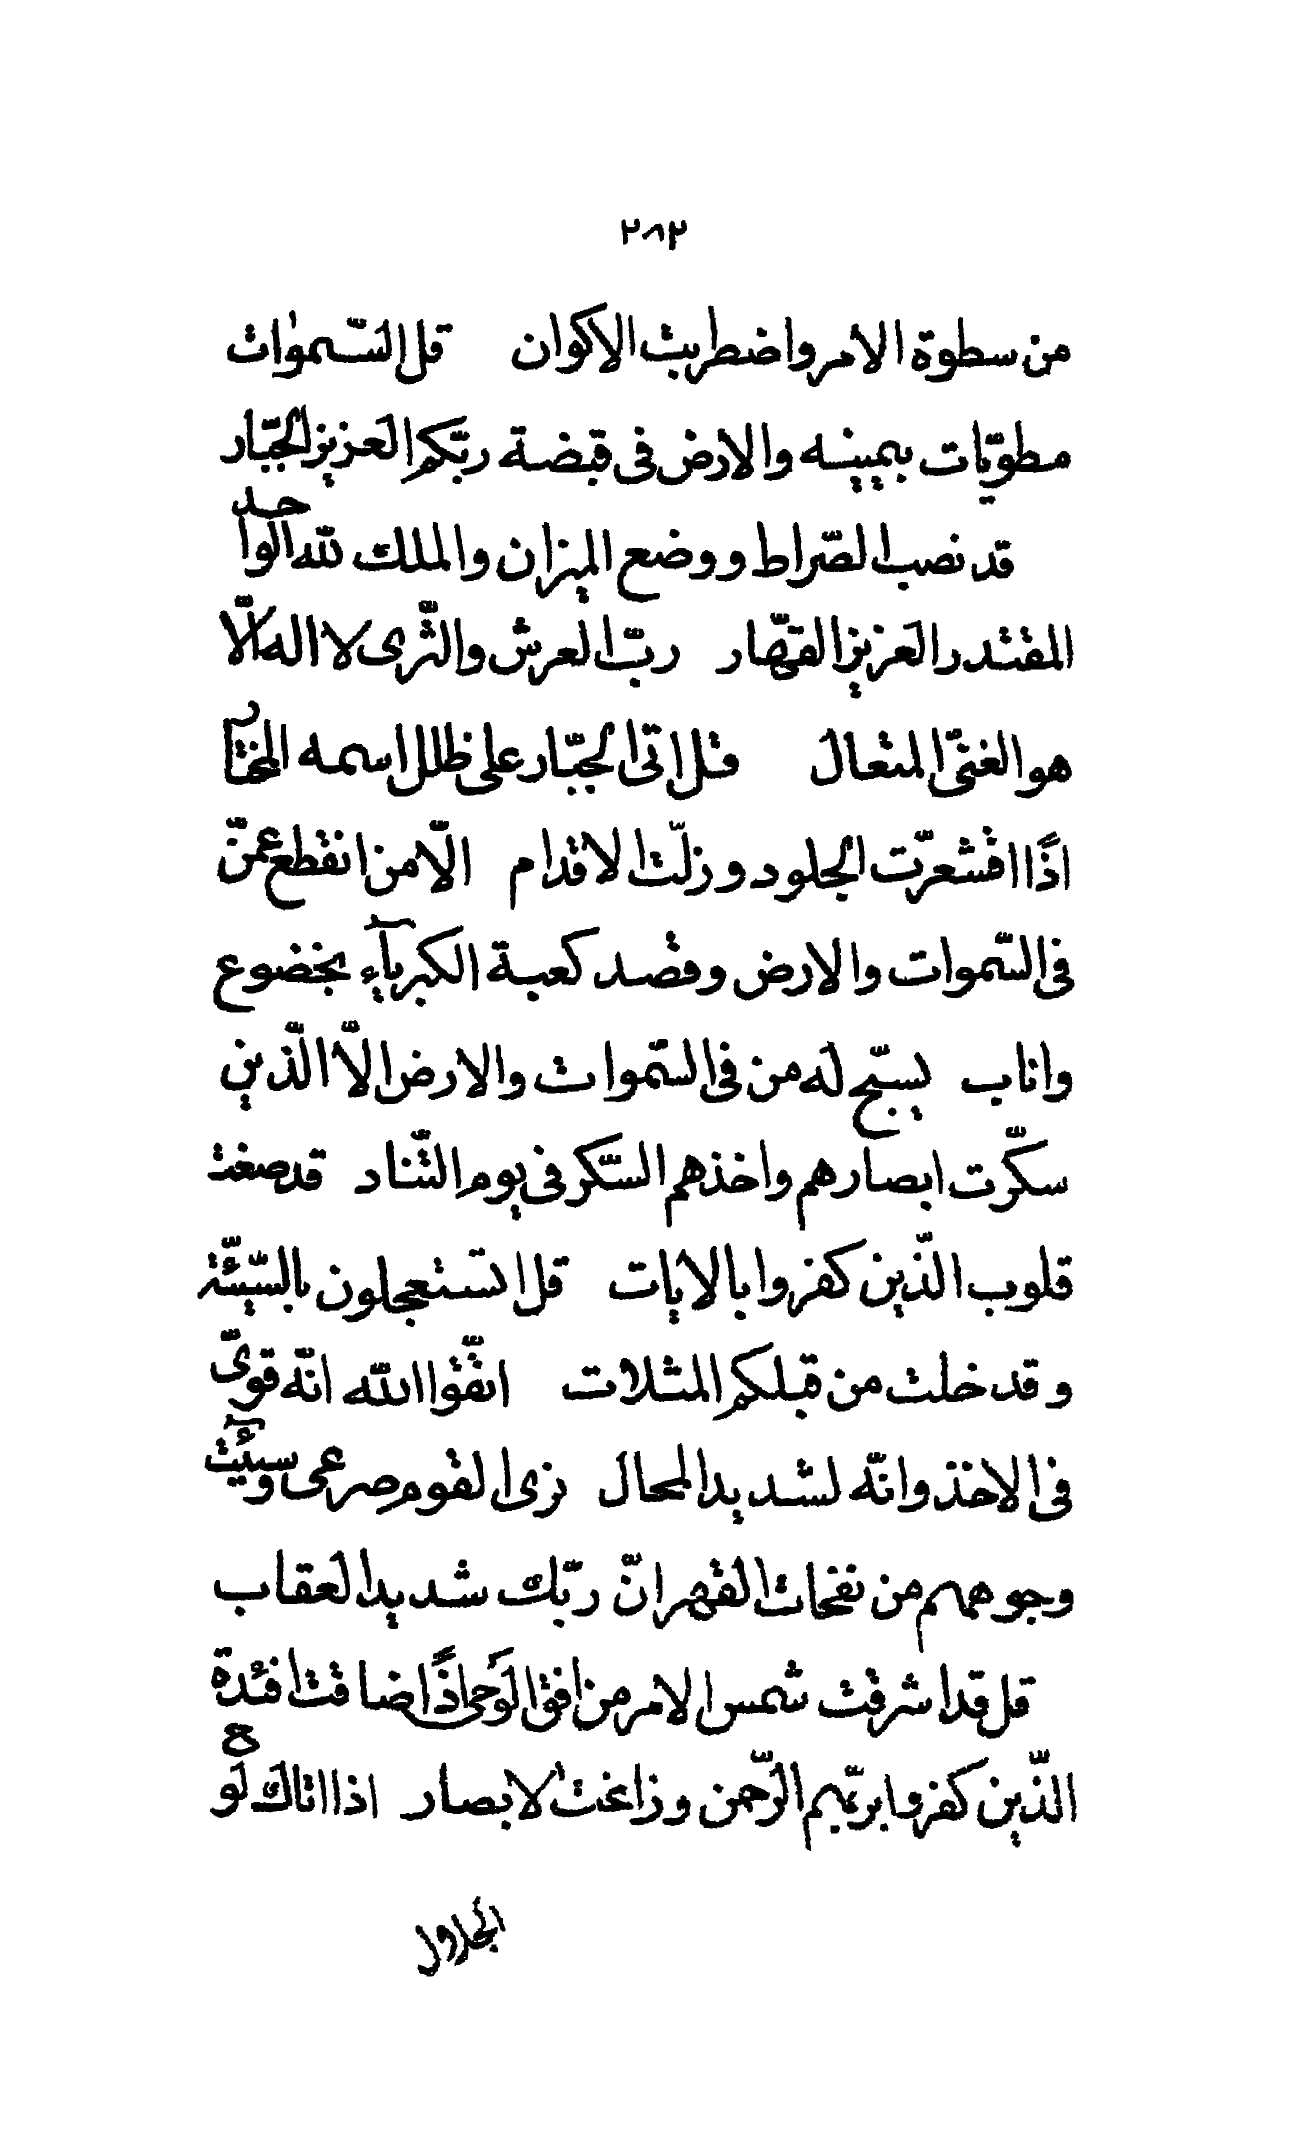 ٢٨٢
من سطوة الامر واضطربت الاكوان قل السّموٰات
مطويّات بيمينه والارض فى قبضة ربّكم العزيز الجبّار
قد نصب الصّراط ووضع الميزان والملك للّه الواحد
المقتدر العزيز القهّار ربّ العرش والثّرى لا اله الّا
هو الغنىّ المتعال قل اتى الجبّار على ظلل اسمه المختار
اذًا اقشعرّت الجلود وزلّت الاقدام الّا من انقطع عمّن
فى السّموات والارض وقصد كعبة الكبريآء بخضوع
واناب يسبّح له من فى السّموات والارض الّا الّذين
سكّرت ابصارهم واخذهم السّكر فى يوم التّناد قد صغت
قلوب الّذين كفروا بالايات قل اتستعجلون بالسّيّئة
وقد خلت من قبلكم المثلات اتّقوا اللّه انّه قوىّ
فى الاخذ وانّه لشديد المحال نرى القوم صرعى وسيئت
وجوههم من نفحات القهر انّ ربّك شديد العقاب
قل قد اشرقت شمس الامر من افق الوحى اذًا ضاقت افئدة
الّذين كفروا بربّهم الرّحمن وزاغت الابصار اذا اتاك لوح
الجلال